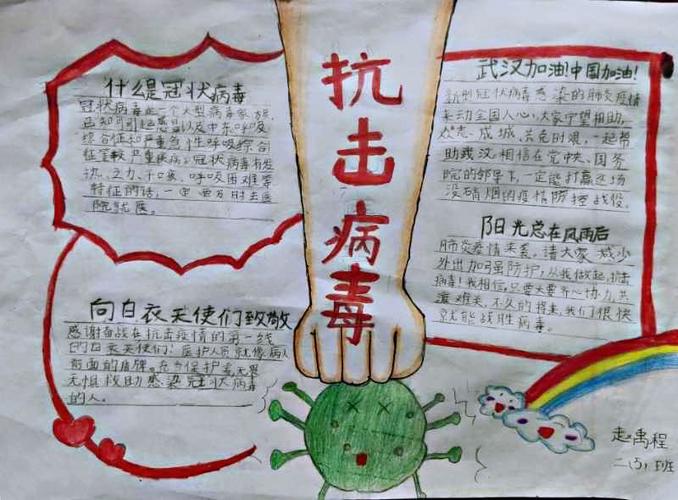 抗击病毒
什么是冠状病毒
冠状病毒是一个大型病毒家族,
已知可引起感冒以及中东呼吸
综合征和严重急性呼吸综合
征等较严重疾病。冠状病毒有发
热、乏力、干咳、呼吸困难等
特征的话,一定要及时去医
院就医。
向白衣天使们致敬
感谢奋战在抗击疫情的第一线
的白衣天使们!医护人员就像病人
前面的盾牌。在保护着无畏
无惧救助感染冠状病毒
的人。
武汉加油!中国加油!
新型冠状病毒感染的肺炎疫情
牵动全国人心,大家守望相助,
众志成城,共克时艰,一起帮
助武汉,相信在党中央、国务
院的领导下,一定能打赢这场
没硝烟的疫情防控战役。
阳光总在风雨后
肺炎疫情来袭。请大家减少
外出加强防护,从我做起,抗击
病毒!我相信,只要大家齐心协力,共
渡难关,不久的将来,我们很快
就能战胜病毒。
赵禹程
二(5)班